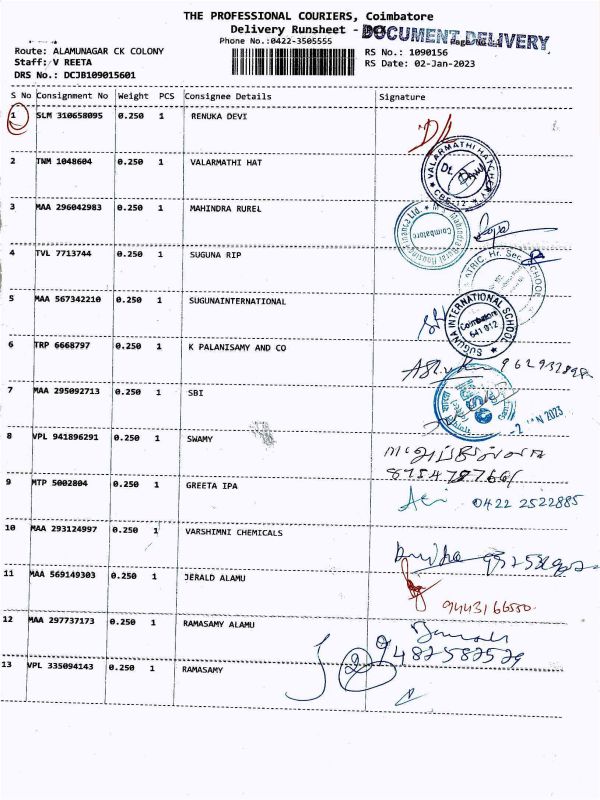 THE PROFESSIONAL COURIERS, Coimbatore
Delivery Runsheet - DOCUMENT DELIVERY
Phone No.:0422-3505555
Route: ALAMUNAGAR CK COLONY RS No.: 1090156
Staff: V REETA RS Date: 02-Jan-2023
DRS No.: DCJB109015601
S No Consignment No Weight PCS Consignee Details Signature
1 SLM 310658095 0.250 1 RENUKA DEVI
2 TNM 1048604 0.250 1 VALARMATHI HAT
VALARMATHI HATCHERY
CBE-12
3 MAA 296042983 0.250 1 MAHINDRA RUREL
Mahindra Rural Housing Finance Ltd.
Coimbatore
4 TVL 7713744 0.250 1 SUGUNA RIP
MATRIC. Hr. Sec. SCHOOL
5 MAA 567342210 0.250 1 SUGUNAINTERNATIONAL
SUGUNA INTERNATIONAL SCHOOL
Coimbatore
641 012
6 TRP 6668797 0.250 1 K PALANISAMY AND CO
7 MAA 295092713 0.250 1 SBI
-2 JAN 2023
8 VPL 941896291 0.250 1 SWAMY
9 MTP 5002804 0.250 1 GREETA IPA
0422 2522885
10 MAA 293124997 0.250 1 VARSHIMNI CHEMICALS
11 MAA 569149303 0.250 1 JERALD ALAMU
9443166550
12 MAA 297737173 0.250 1 RAMASAMY ALAMU
9482582529
13 VPL 335094143 0.250 1 RAMASAMY